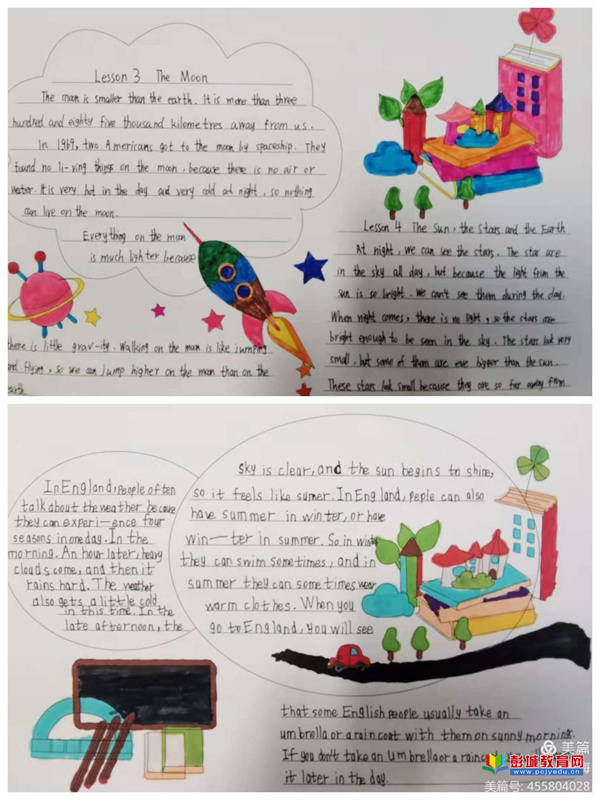 Lesson 3 The Moon
The moon is smaller than the earth. It is more than three
hundred and eighty five thousand kilometres away from us.
In 1969, two Americans got to the moon by spaceship. They
found no li-ving things on the moon, because there is no air or
water. It is very hot in the day and very cold at night, so nothing
can live on the moon.
Everything on the moon
is much lighter because
there is little grav-ity. Walking on the moon is like jumping
and flying, so we can jump higher on the moon than on the
earth.
Lesson 4 The Sun, the Stars and the Earth
At night, we can see the stars. The star are
in the sky all day, but because the light from the
sun is so bright. We can't see them during the day.
When night comes, there is no light, so the stars are
bright enough to be seen in the sky. The stars look very
small, but some of them are ever bigger than the sun.
These stars look small because they are so far away from
In England, People often
talk about the weather because
they can experi-ence four
seasons in one day. In the
morning. An hour later, heavy
clouds come, and then it
rains hard. The weather
also gets a little cold
in this time. In the
late afternoon, the
sky is clear, and the sun begins to shine,
so it feels like sumer. In England, peple can also
have summer in winter, or have
win-ter in summer. So in winter
they can swim sometimes, and in
summer they can sometimes wear
warm clothes. When you
go to England, you will see
that some English people usually take an
umbrella or a rain coat with them on sunny morning.
If you don't take an umbrella or a raincoat
it later in the day.
美篇
彭城教育网
www.pcjyedu.cn
美篇号: 455804028